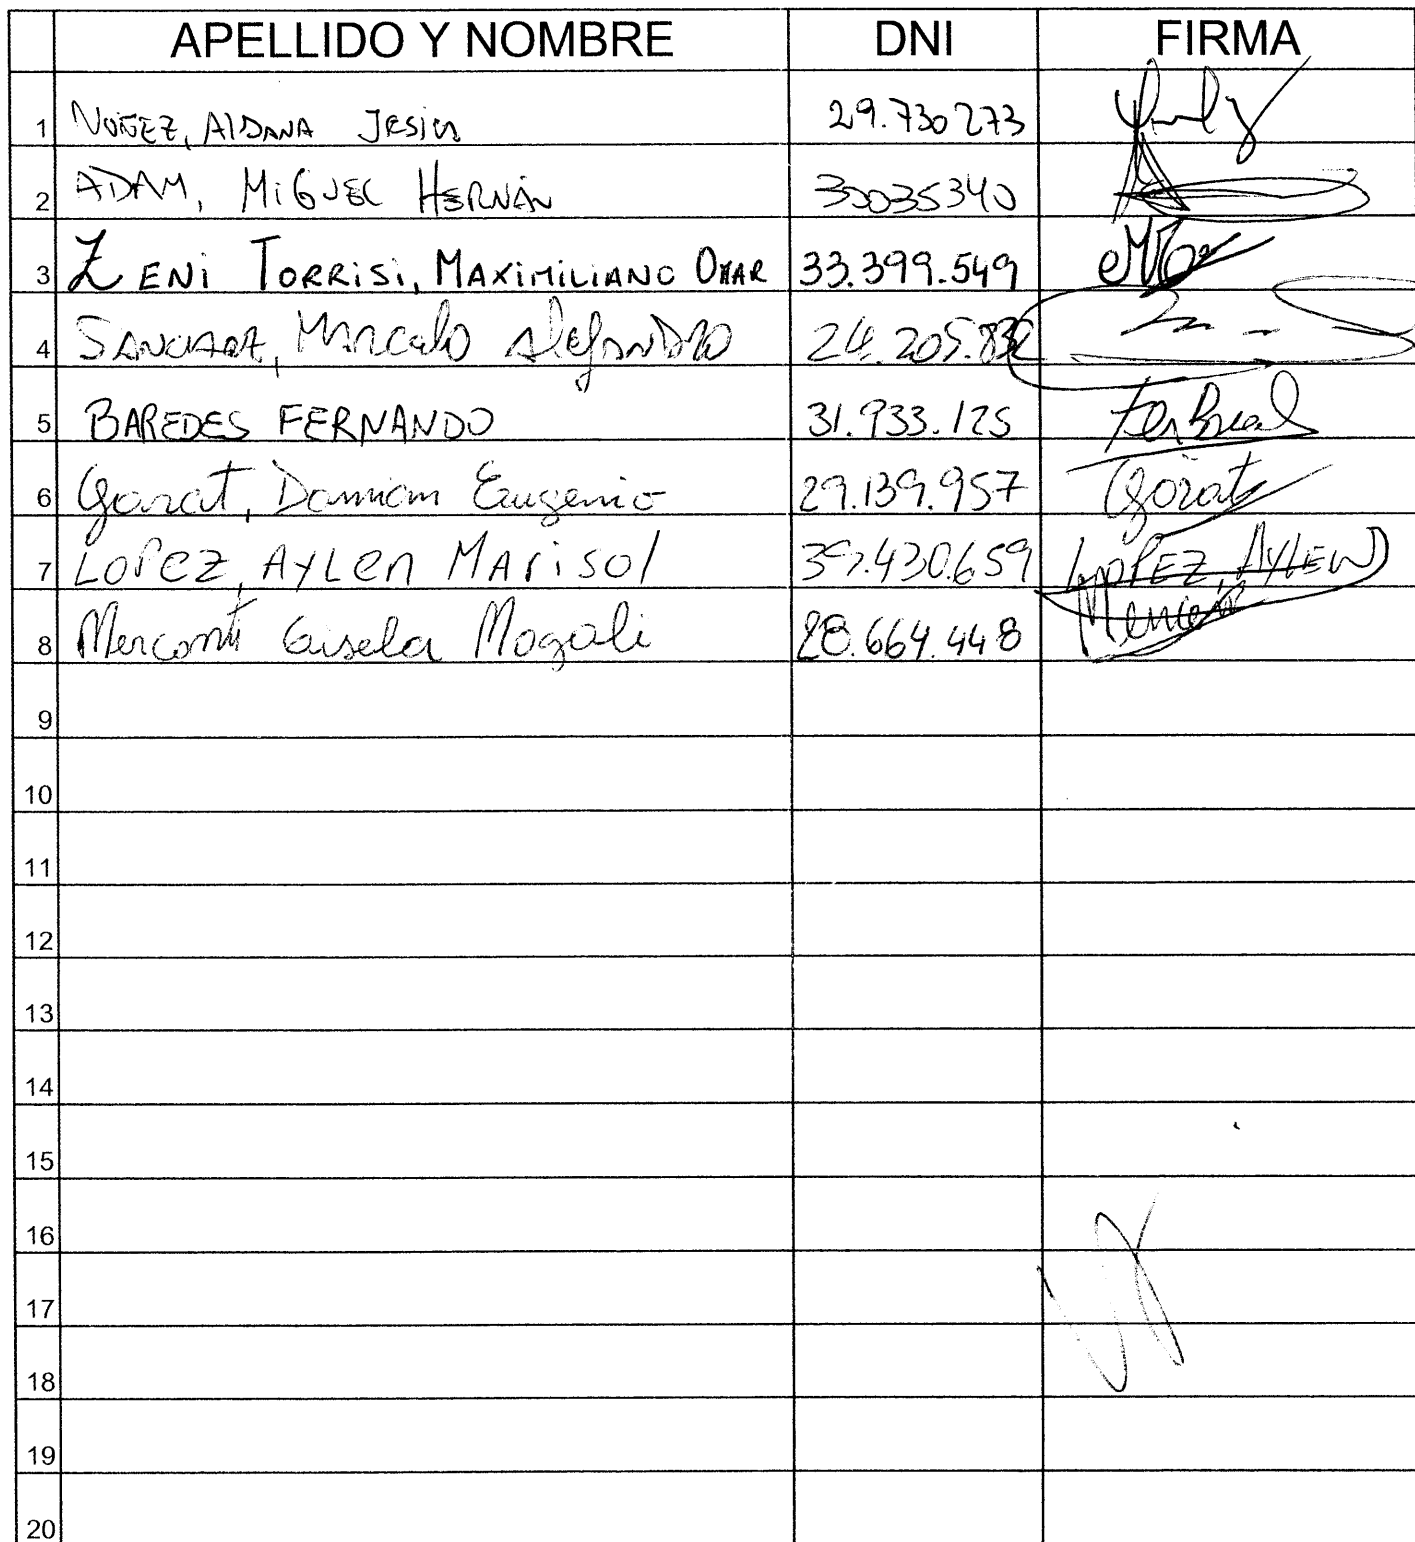 APELLIDO Y NOMBRE DNI FIRMA
1 NUÑEZ, AIDANA JESICA 29.730273
2 ADAM, MIGUEL HERNÁN 30035340
3 ZENI TORRISI, MAXIMILIANO OMAR 33.399.549
4 SANCHEZ, Marcelo Alejandro 24.205.832
5 BAREDES FERNANDO 31.933.125
6 Garat, Damian Eugenio 29.139.957 Garat
7 LOPEZ, AYLen MARiSol 39.430.659 LOPEZ, AYLEN
8 Gisela Magali 28.664.448
9
10
11
12
13
14
15
16
17
18
19
20